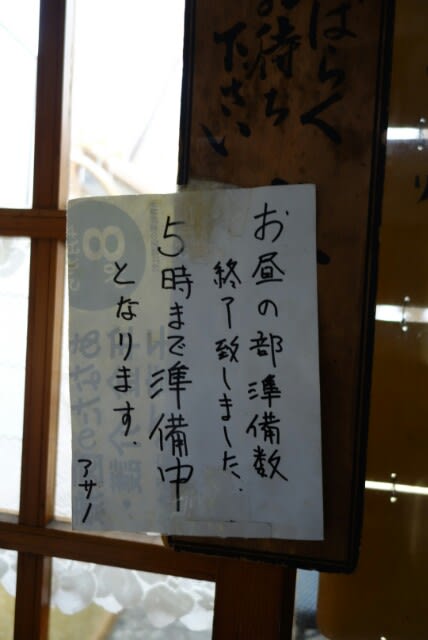 しばらく
お待ち
下さい
お昼の部準備数
終了致しました.
5時まで準備中
となります.
アサノ
8